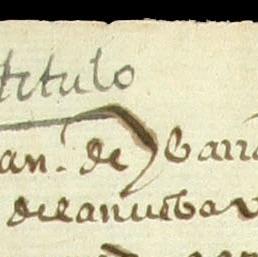 titulo
an. de Ybarr
de la nueba v